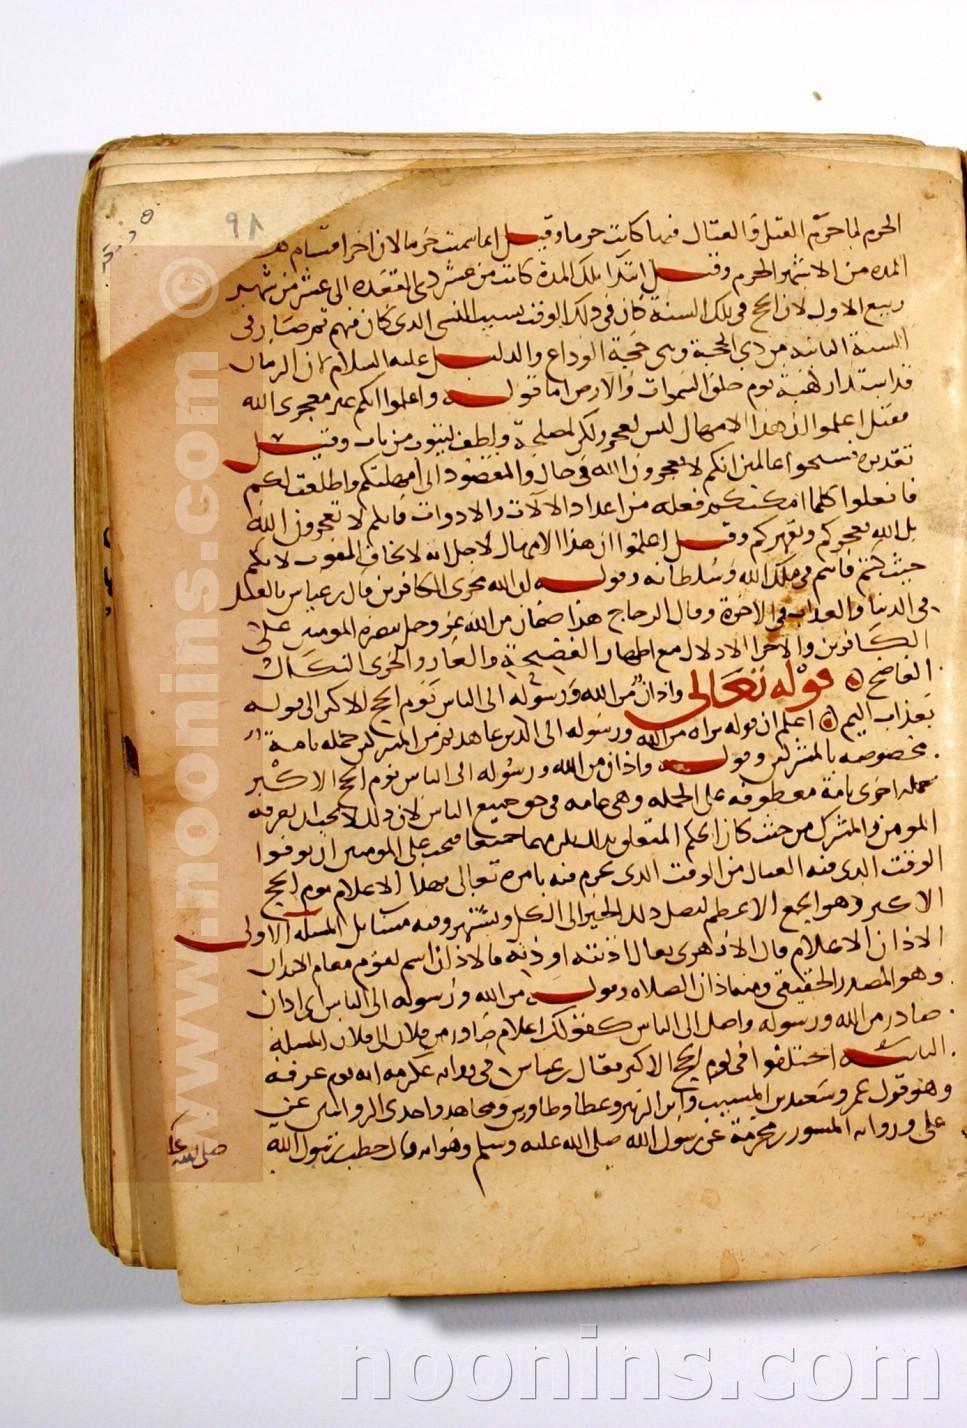 ٩٨
الحرم لما حرم القتل والقتال فيها كانت حرما وقيل انما سميت حرما لان احد اقسام هذه
المده من الاشهر الحرم وقيل ابتدا تلك المدة كانت من عشر ذى القعده الى عشر من شهر
ربيع الاول لان الحج فى تلك السنة كان فى ذلك الوقت بسبب النسى الذى كان فيهم ثم صار فى
السنة الثانيه من ذى الحجة وهى حجة الوداع والدليل عليه السلام ان الزمان
قد استدار كهيئة يوم خلق السموات والارض اما قوله واعلموا انكم غير معجزى الله
فقيل اعلموا ان هذا الامهال ليس لعجز ولكن لمصلحة ولطف ليتوب من تاب وقيل
تقديره فسيحوا عالمين انكم لا تعجزون الله فى حال والمقصود انى امهلتكم واطلقت لكم
فافعلوا كلما امكنكم فعله من اعداد الآلات والادوات فانكم لا تعجزون الله
بل الله يعجزكم ويقهركم وقيل اعلموا ان هذا الامهال لاجل انه لا يخاف الفوت لانكم
حيث كنتم فانتم فى ملك الله وسلطانه وقوله ان الله مخزى الكافرين قال بن عباس بالقتل
فى الدنيا والعذاب فى الاخرة وقال الزجاج هذا ضمان من الله عز وجل بنصرة المومنين على
الكافرين والاخزا الاذلال مع اظهار الفضيحة والعار والخزى النكال
الفاضح قوله تعالى واذان من الله ورسوله الى الناس يوم الحج الاكبر الى قوله
بعذاب اليم اعلم ان قوله براه من الله ورسوله الى الذين عاهدتم من المشركين جمله تامة
مخصوصه بالمشركين وقوله واذان من الله ورسوله الى الناس يوم الحج الاكبر
جمله اخرى تامة معطوفه على الجمله وهى عامه فى حق جميع الناس لان ذلك لا يجب ان يعرفه
المومن والمشرك من حيث كان الحكم المتعلق بذلك يلزمهما جميعا فيجب على المومنين ان يعرفوا
الوقت الذى فيه القتال من الوقت الذى يحرم فيه بامره تعالى بهذا الاعلام يوم الحج
الاكبر وهو الجمع الاعظم ليصل ذلك الخبر الى الكل ويشتهر وفيه مسايل المسلة الاولى
الاذان الاعلام قال الازهرى يقال اذنته اوذنه فالاذان اسم يقوم مقام الايذان
وهو المصدر الحقيقى ومنه اذان الصلاه وقوله من الله ورسوله الى الناس اى اذان
صادر من الله ورسوله واصل الى الناس كقولك اعلام صادر من فلان الى فلان المسلة
الثانيه اختلفوا فى يوم الحج الاكبر فقال بن عباس فى روايه عكرمه انه يوم عرفه
وهو قول عمر وسعيد بن المسيب وابن الزبير وعطا وطاوس ومجاهد واحدى الروايتين عن
على وروايه المسور بن مخرمة عن رسول الله صلى الله عليه وسلم وهو انه قال خطب رسول الله
صلى الله
www.noonins.com ©
noonins.com